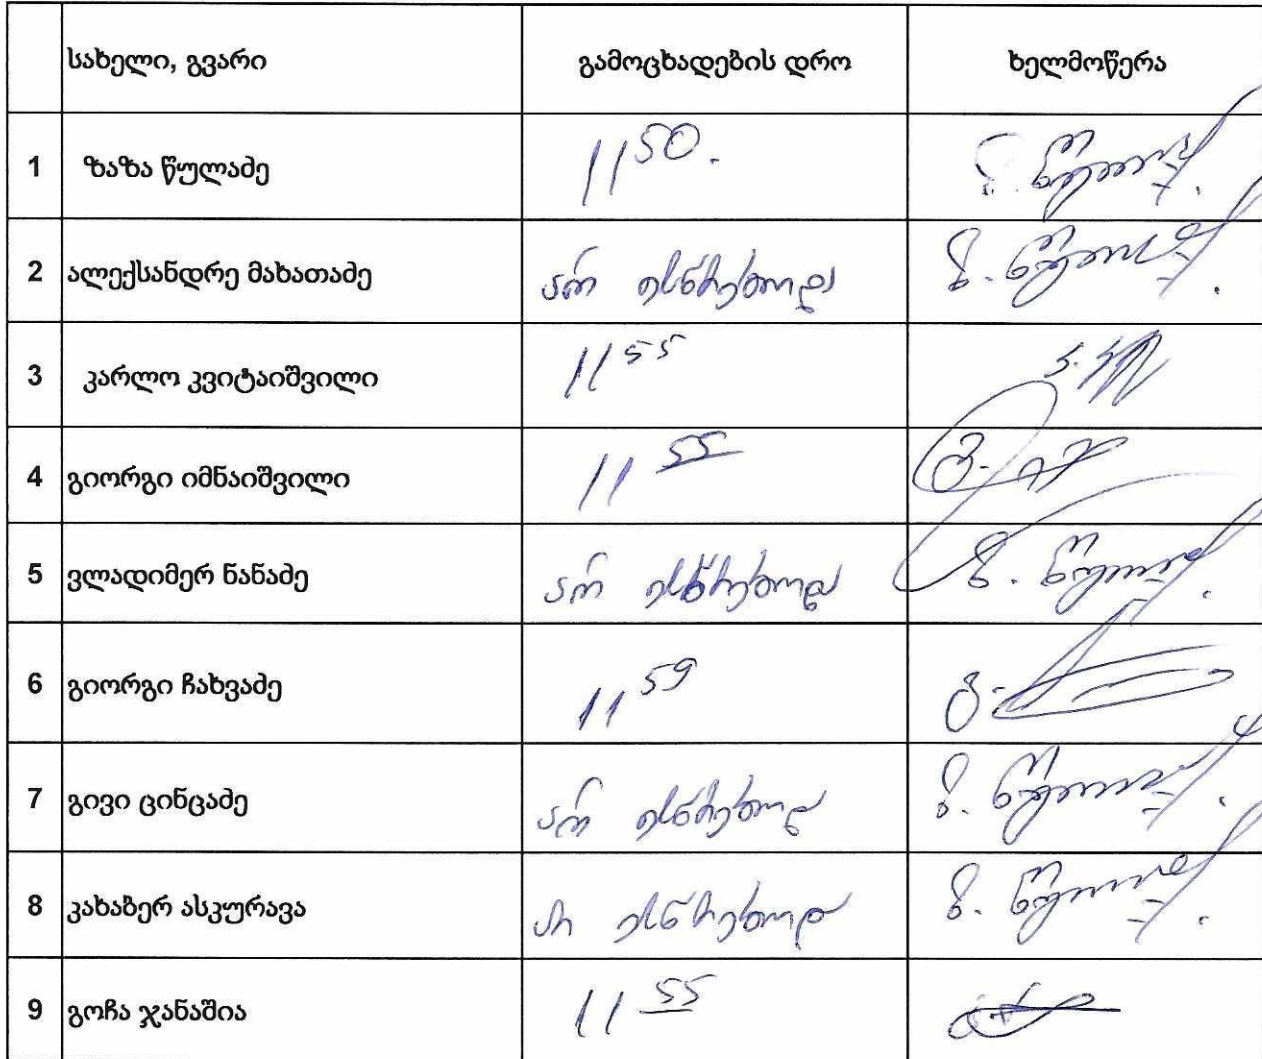 სახელი, გვარი გამოცხადების დრო ხელმოწერა
1 ზაზა წულაძე 11 50.
2 ალექსანდრე მახათაძე არ ესწრებოდა
3 კარლო კვიტაიშვილი 11 55
4 გიორგი იმნაიშვილი 11 55
5 ვლადიმერ ნანაძე არ ესწრებოდა
6 გიორგი ჩახვაძე 11 59
7 გივი ცინცაძე არ ესწრებოდა
8 კახაბერ ასკურავა არ ესწრებოდა
9 გოჩა ჯანაშია 11 55